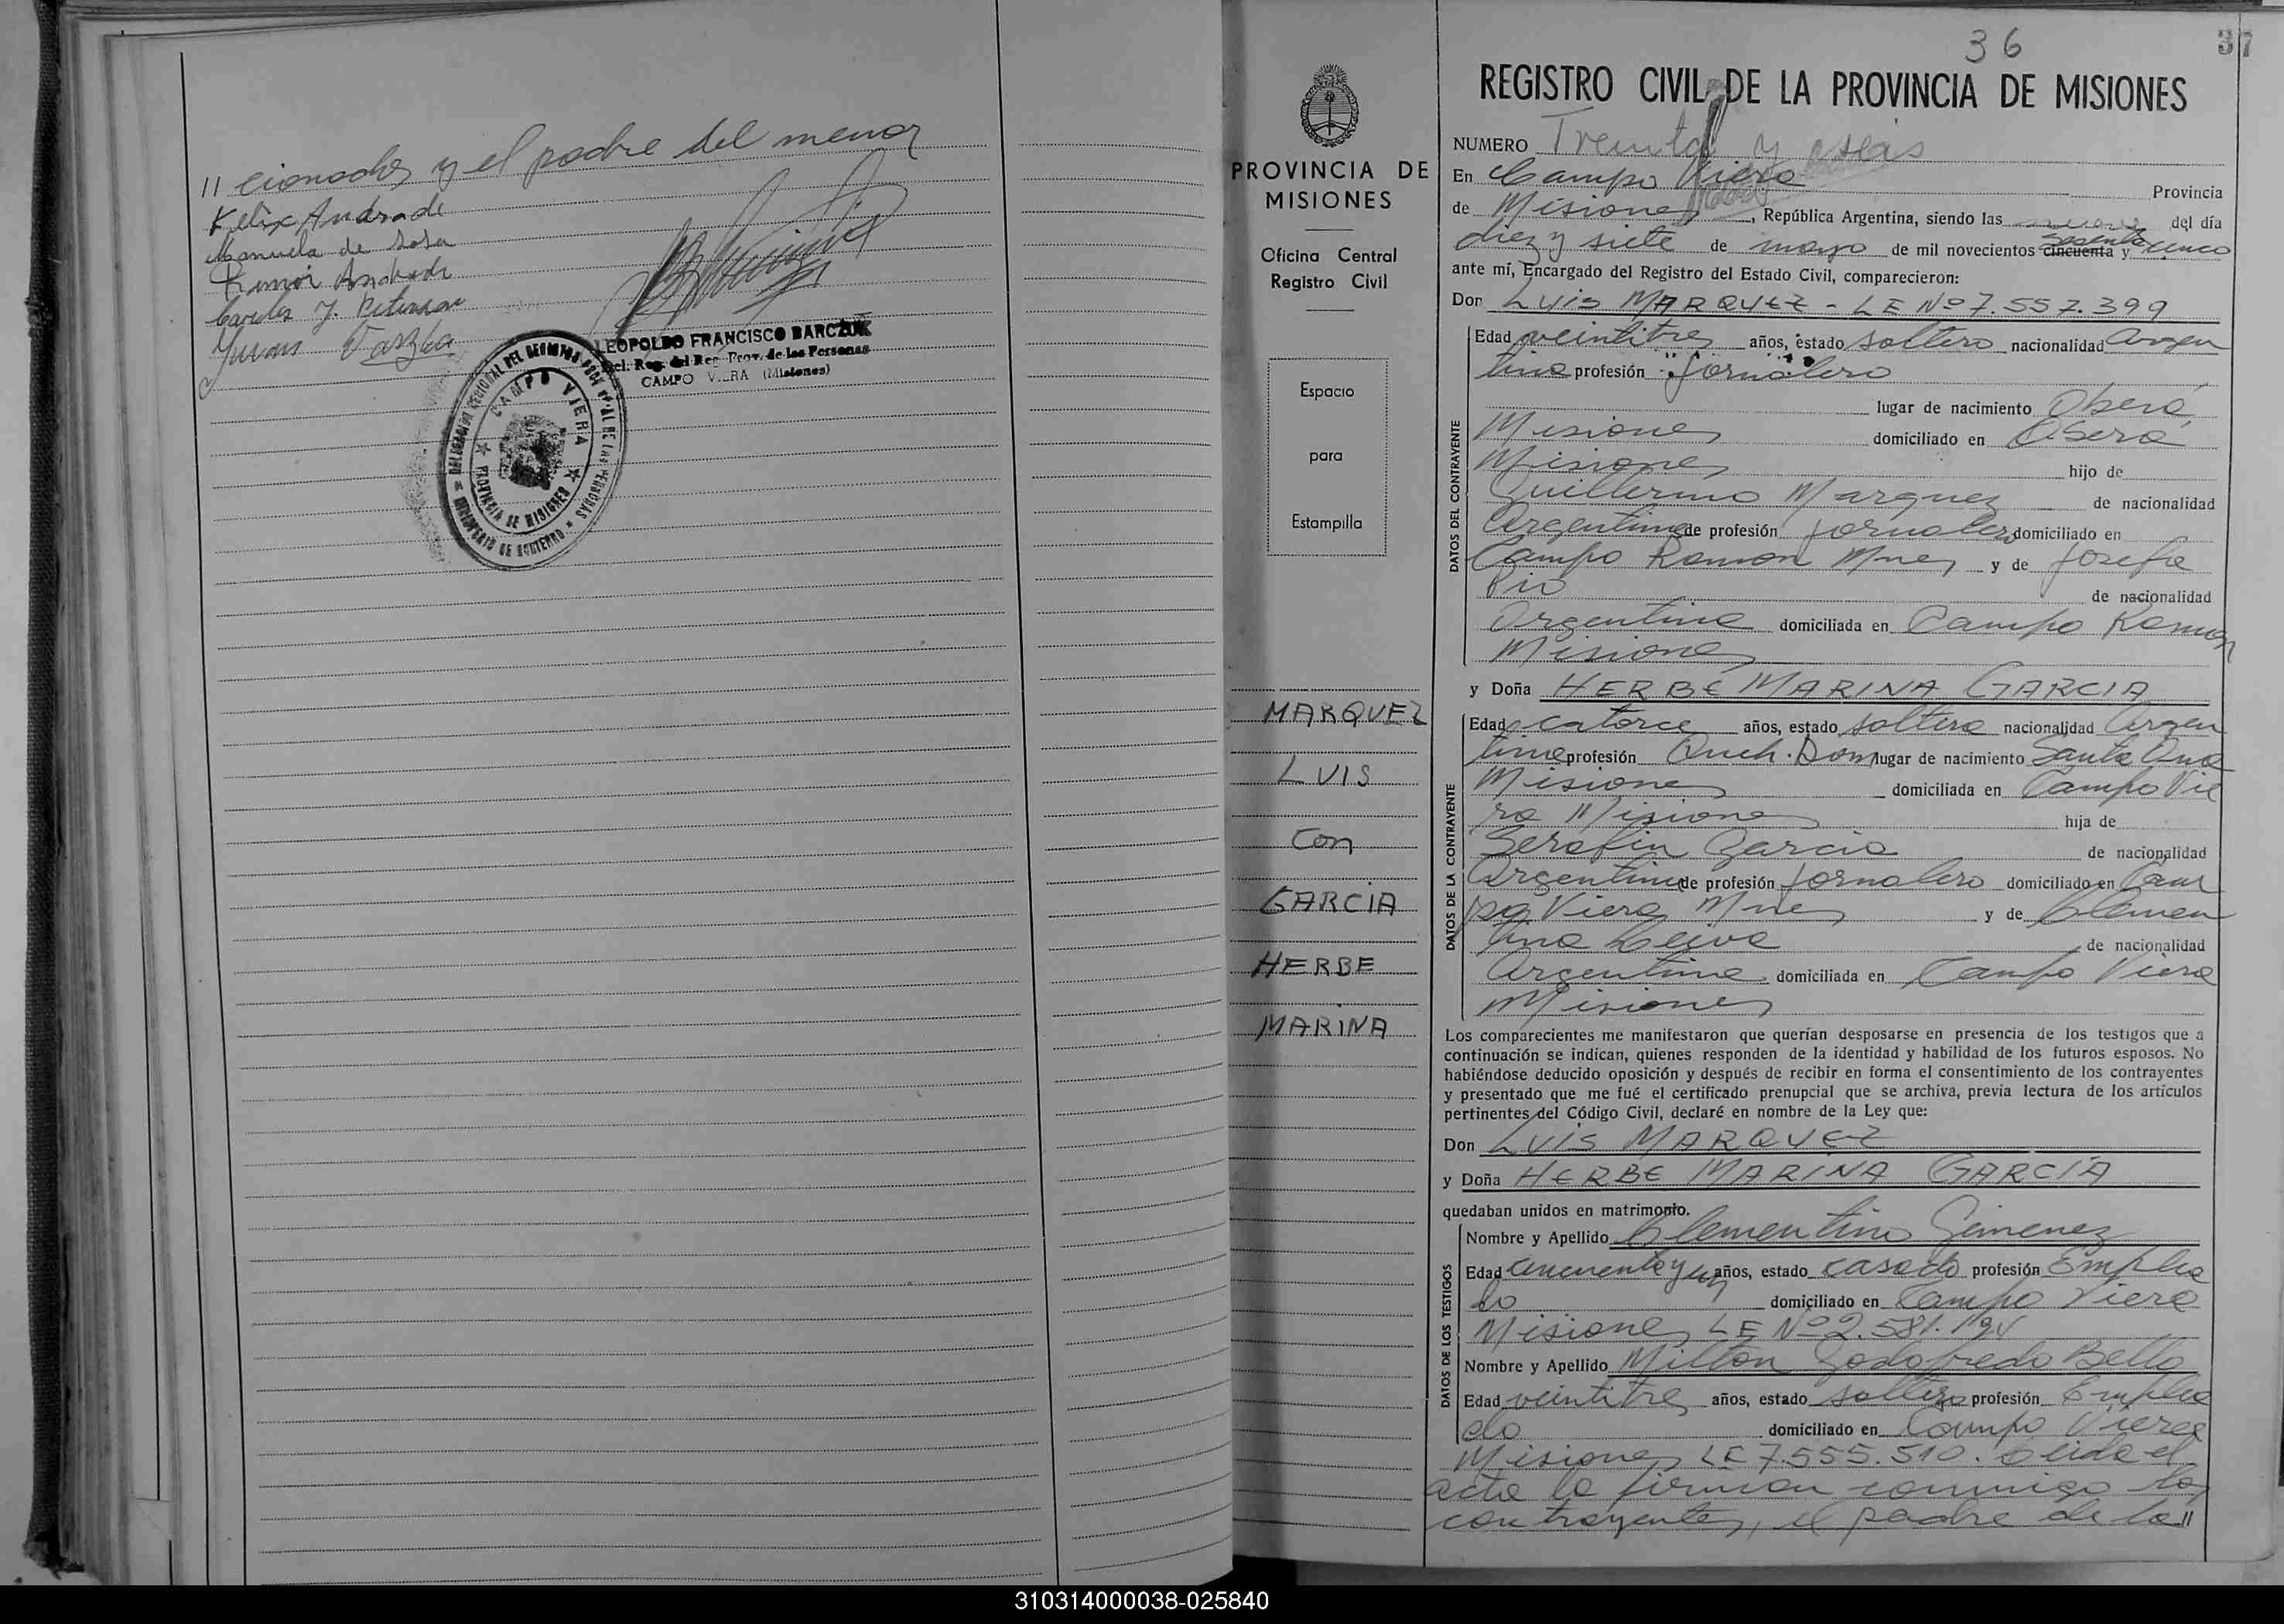 // cionados y el padre del menor
Felix Andrade
Manuela de Sosa
Ramón Andrade
Carlos J. Peterson
LEOPOLDO FRANCISCO BARCZUK
Del. Reg. del Reg. Prov. de las Personas
CAMPO VIERA (Misiones)
CAMPO VIERA
PROVINCIA DE MISIONES
MINISTERIO DE GOBIERNO
PROVINCIA DE
MISIONES
Oficina Central
Registro Civil
Espacio
para
Estampilla
MARQUEZ
LUIS
Con
GARCIA
HERBE
MARINA
36
37
REGISTRO CIVIL DE LA PROVINCIA DE MISIONES
NUMERO Treinta y seis
En Campo Viera Provincia
de Misiones, República Argentina, siendo las nueve del día
diez y siete de mayo de mil novecientos cincuenta y sesenta cinco
ante mí, Encargado del Registro del Estado Civil, comparecieron:
Don LUIS MARQUEZ - LE Nº 7.557.399
DATOS DEL CONTRAYENTE
Edad veintitres años, estado soltero nacionalidad argen
tina profesión jornalero
lugar de nacimiento Oberá
Misiones domiciliado en Oberá
Misiones hijo de
Guillermo Marquez de nacionalidad
Argentina de profesión jornalero domiciliado en
Campo Ramon Mnes y de Josefa
Pio de nacionalidad
Argentina domiciliada en Campo Ramon
Misiones
y Doña HERBE MARINA GARCIA
DATOS DE LA CONTRAYENTE
Edad catorce años, estado soltera nacionalidad Argen
tina profesión Queh. Dom lugar de nacimiento Santa Ana
Misiones domiciliada en Campo Vie
ra Misiones hija de
Serafin Garcia de nacionalidad
Argentina de profesión jornalero domiciliado en Cam
po Viera Mnes y de Clemen
tina Leiva de nacionalidad
Argentina domiciliada en Campo Viera
Misiones
Los comparecientes me manifestaron que querían desposarse en presencia de los testigos que a
continuación se indican, quienes responden de la identidad y habilidad de los futuros esposos. No
habiéndose deducido oposición y después de recibir en forma el consentimiento de los contrayentes
y presentado que me fué el certificado prenupcial que se archiva, previa lectura de los artículos
pertinentes del Código Civil, declaré en nombre de la Ley que:
Don LUIS MARQUEZ
y Doña HERBE MARINA GARCÍA
quedaban unidos en matrimonio.
DATOS DE LOS TESTIGOS
Nombre y Apellido Clementino Gimenez
Edad cincuenta y un años, estado casado profesión Emplea
do domiciliado en Campo Viera
Misiones LE Nº 2.581.194
Nombre y Apellido Milton Godofredo Bello
Edad veintitres años, estado soltero profesión Emplea
do domiciliado en Campo Viera
Misiones LE 7.555.510. Leida el
acta la firman conmigo los
contrayentes, el padre de la //
310314000038-025840